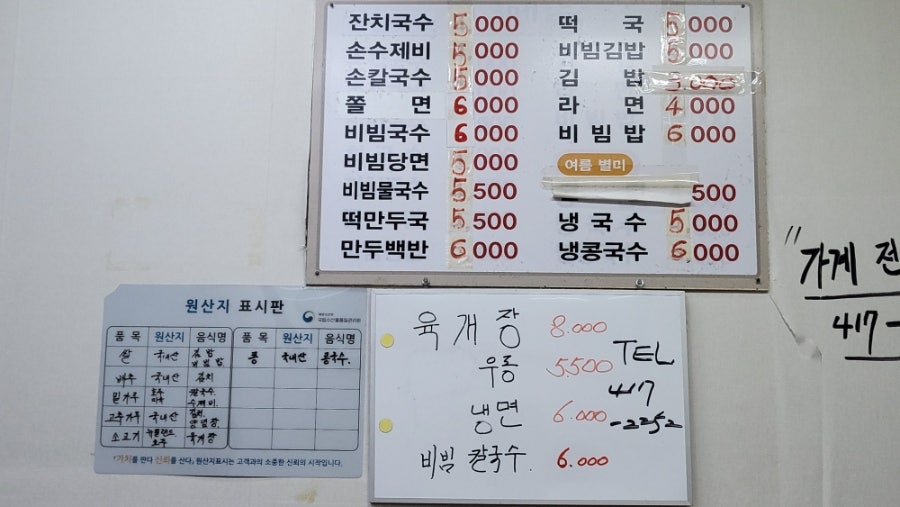 잔치국수 5000
손수제비 5000
손칼국수 5000
쫄면 6000
비빔국수 6000
비빔당면 5000
비빔물국수 5500
떡만두국 5,500
만두백반 6,000
떡국 5,000
비빔김밥 5,000
김밥 3.000
라면 4000
비빔밥 6000
여름 별미
500
냉국수 5,000
냉콩국수 6,000
원산지 표시판
품목 원산지 음식명 품목 원산지 음식명
쌀 국내산 김밥 비빔밥 콩 국내산 콩국수.
배추 국내산 김치
밀가루 호주 미국 칼국수 수제비
고추가루 국내산 김치
소고기 뉴질랜드 호주 육개장
「가치를 판다 신뢰를 산다」 원산지표시는 고객과의 소중한 신뢰의 시작입니다.
육개장 8.000
우동 5,500
냉면 6.000
비빔 칼국수. 6.000
TEL
417
-2252
"가게 전
417-